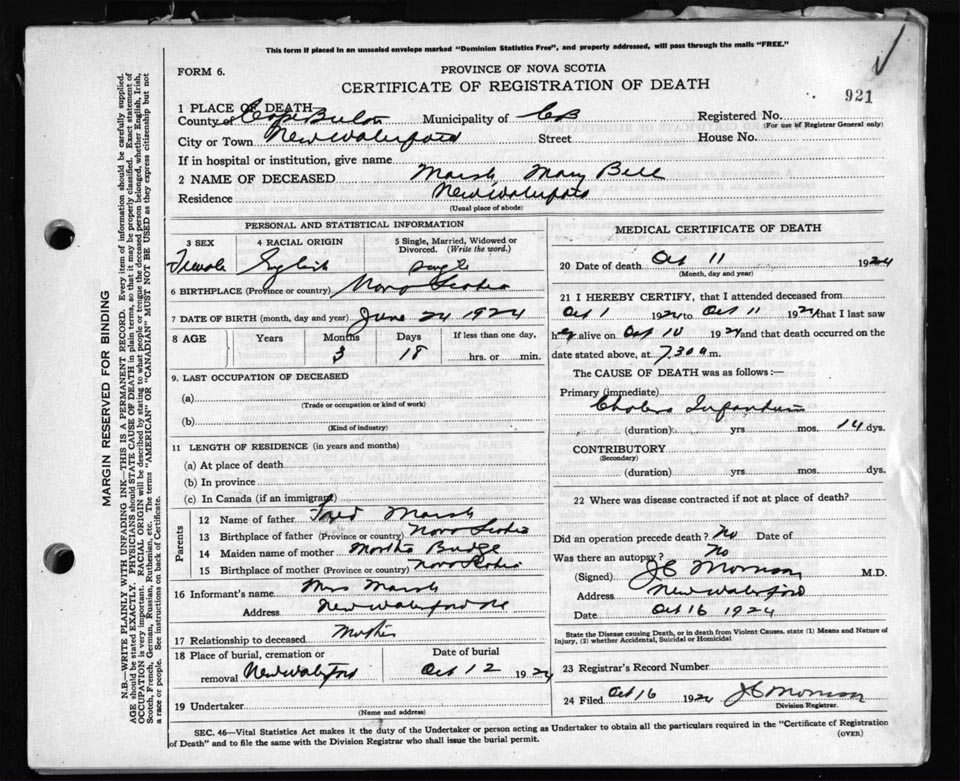 This form if placed in an unsealed envelope marked "Dominion Statistics Free", and properly addressed, will pass through the mails "FREE."
FORM 6.
PROVINCE OF NOVA SCOTIA
CERTIFICATE OF REGISTRATION OF DEATH
921
1 PLACE OF DEATH
County of Cape Breton Municipality of CB Registered No.
(For use of Registrar General only)
City or Town New Waterford Street House No.
If in hospital or institution, give name
2 NAME OF DECEASED Marsh Mary Bell
Residence New Waterford
(Usual place of abode)
PERSONAL AND STATISTICAL INFORMATION
3 SEX 4 RACIAL ORIGIN 5 Single, Married, Widowed or Divorced. (Write the word.)
Female English single
6 BIRTHPLACE (Province or country) Nova Scotia
7 DATE OF BIRTH (month, day and year) June 24 1924
8 AGE Years Months Days If less than one day,
3 18 hrs. or min.
9. LAST OCCUPATION OF DECEASED
(a)
(Trade or occupation or kind of work)
(b)
(Kind of industry)
11 LENGTH OF RESIDENCE (in years and months)
(a) At place of death
(b) In province
(c) In Canada (if an immigrant)
Parents
12 Name of father Fred Marsh
13 Birthplace of father (Province or country) Nova Scotia
14 Maiden name of mother Martha Budge
15 Birthplace of mother (Province or country) Nova Scotia
16 Informant's name Mrs Marsh
Address New Waterford NS
17 Relationship to deceased Mother
18 Place of burial, cremation or removal New Waterford
Date of burial Oct 12 1924
19 Undertaker
(Name and address)
MEDICAL CERTIFICATE OF DEATH
20 Date of death Oct 11 1924
(Month, day and year)
21 I HEREBY CERTIFY, that I attended deceased from
Oct 1 1924 to Oct 11 1924 that I last saw
her alive on Oct 10 1924 and that death occurred on the
date stated above, at 7.30 a m.
The CAUSE OF DEATH was as follows:—
Primary (immediate)
Cholera Infantum
(duration) yrs mos. 14 dys.
CONTRIBUTORY
(Secondary)
(duration) yrs. mos. dys.
22 Where was disease contracted if not at place of death?
Did an operation precede death? No Date of
Was there an autopsy? No
(Signed) J C Morrison M.D.
Address New Waterford
Date Oct 16 1924
State the Disease causing Death, or in death from Violent Causes, state (1) Means and Nature of
Injury, (2) whether Accidental, Suicidal or Homicidal
23 Registrar's Record Number
24 Filed Oct 16 1924 J C Morrison
Division Registrar.
SEC. 46—Vital Statistics Act makes it the duty of the Undertaker or person acting as Undertaker to obtain all the particulars required in the "Certificate of Registration
of Death" and to file the same with the Division Registrar who shall issue the burial permit.
(OVER)
MARGIN RESERVED FOR BINDING
N.B.—WRITE PLAINLY WITH UNFADING INK—THIS IS A PERMANENT RECORD. Every item of information should be carefully supplied.
AGE should be stated EXACTLY. PHYSICIANS should STATE CAUSE OF DEATH in plain terms, so that it may be properly classified. Exact statement of
OCCUPATION is very important. RACIAL ORIGIN will be described by stating to what people or tongue the deceased person belonged, whether English, Irish,
Scotch, French, German, Russian, Ruthenian, etc. The terms "AMERICAN" OR "CANADIAN" MUST NOT BE USED as they express citizenship but not
a race or people. See instructions on back of Certificate.